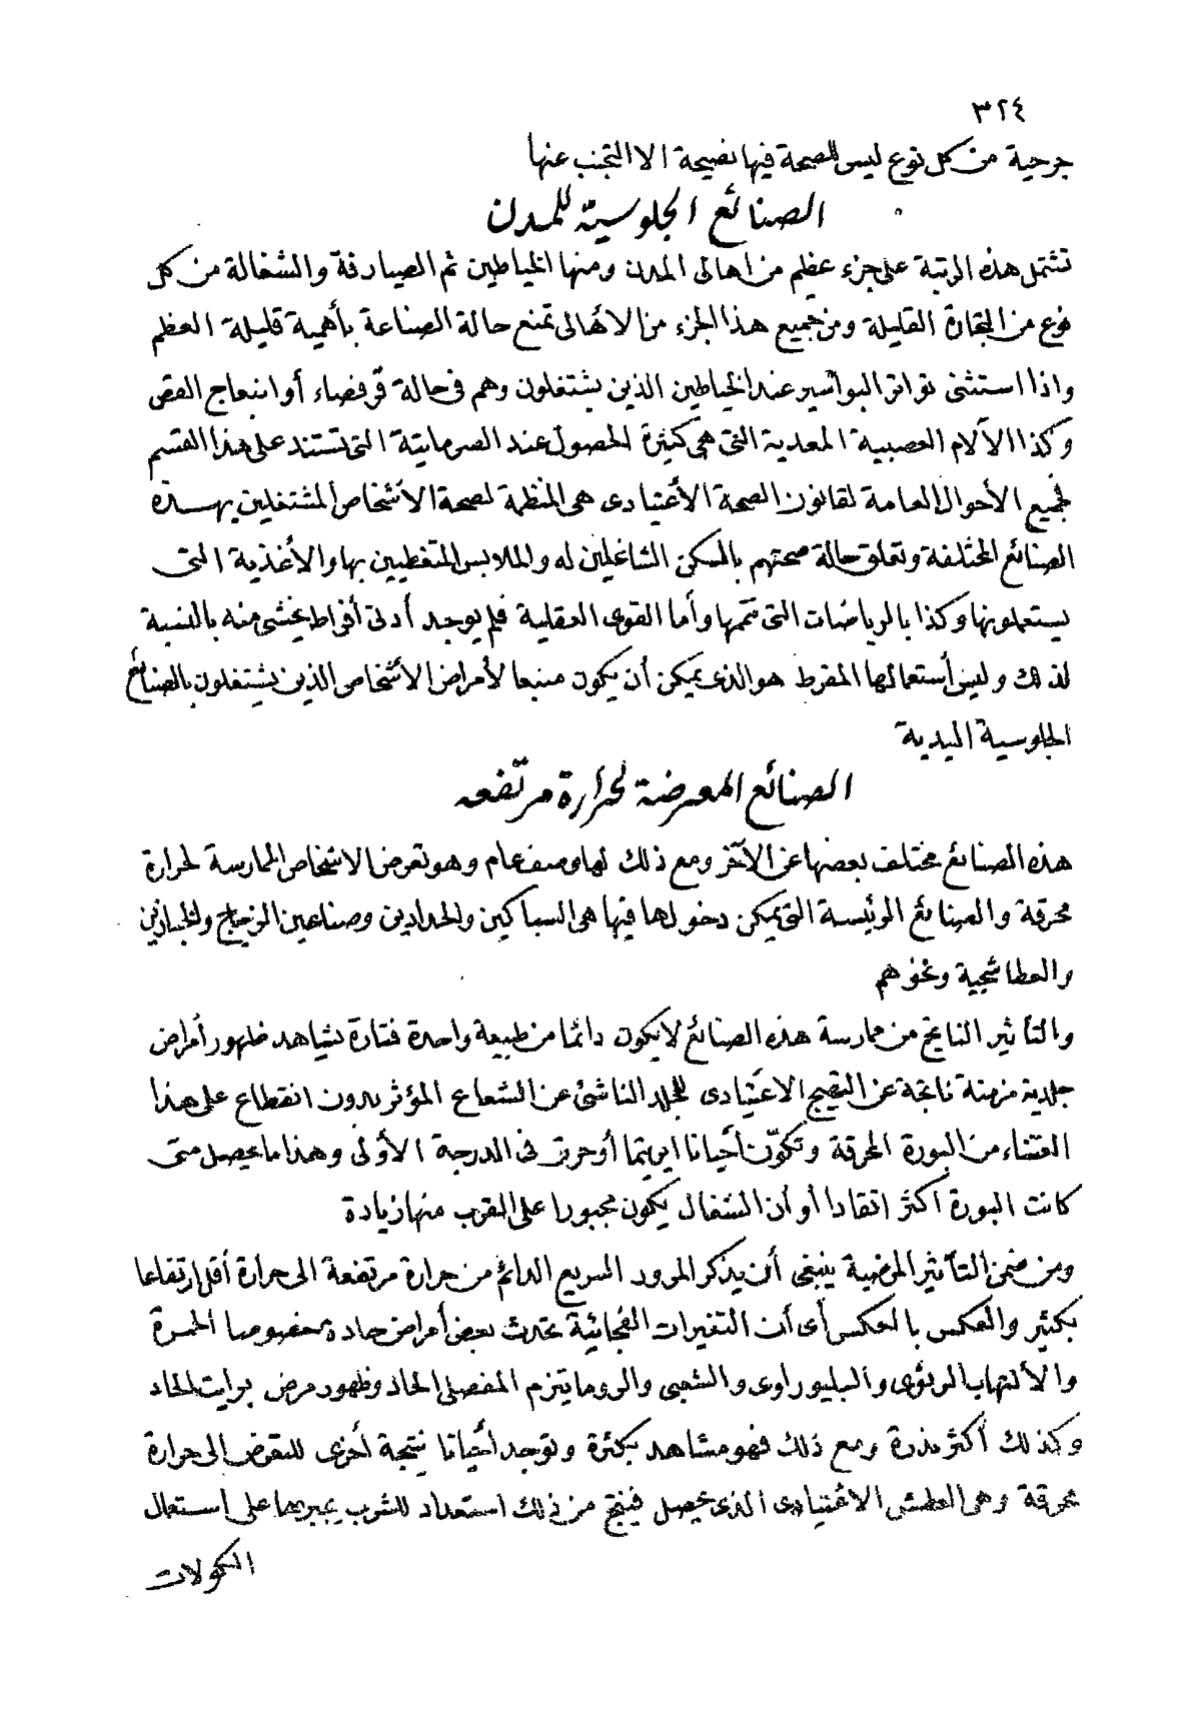 ٣٢٤
جرحية من كل نوع ليس للصحة فيها نصيحة الا التجنب عنها
الصنائع الجلوسية للمدن
تشتمل هذه الرتبة على جزء عظم من اهالى المدن ومنها الخياطين ثم الصيارفة والشغالة من كل
نوع من التجارة القليلة ومن جميع هذا الجزء من الأهالى تمنع حالة الصناعة بأهمية قليلة العظم
واذا استثنى تواتر البواسير عند الخياطين الذين يشتغلون وهم فى حالة قرفصاء أو انبعاج القص
وكذا الآلام العصبية المعدية التى هى كثيرة الحصول عند الصرماتية التى تستند على هذا القسم
فجميع الأحوال العامة لقانون الصحة الأعتيادى هى المنظمة لصحة الأشخاص المشتغلين بهذه
الصنائع المختلفة وتعلق حالة صحتهم بالمسكن الشاغلين له والملابس المتغطيين بها والأغذية التى
يستعملونها وكذا بالرياضات التى تتمها وأما القوى العقلية فلم يوجد أدنى أفراط يخشى منه بالنسبة
لذلك وليس أستعمالها المفرط هو الذى يمكن أن يكون منبعا لأمراض الأشخاص الذين يشتغلون بالصنائع
الجلوسية اليدية
الصنائع المعرضة لحرارة مرتفعه
هذه الصنائع مختلف بعضها عن الآخر ومع ذلك لها وصف عام وهو تعرض الاشخاص الممارسة لحرارة
محرقة والصنائع الرئيسة التى يمكن دخولها فيها هى السباكين والحدادين وصناعين الزجاج والخبازين
والعطاشجية ونحوهم
والتأثير الناتج من ممارسة هذه الصنائع لا يكون دائما من طبيعة واحدة فتارة يشاهد ظهور أمراض
جلدية مزمنة ناتجة عن التهيج الاعتيادى للجلد الناشئ عن الشعاع المؤثر بدون انقطاع على هذا
الغشاء من البورة المحرقة وتكوّن أحيانا اريتما أو حرق فى الدرجة الأولى وهذا ما يحصل متى
كانت البورة اكثر اتقادا أو أن الشغال يكون مجبورا على القرب منها زيادة
ومن ضمن التأثير المرضية ينبغى أن يذكر المرور السريع الدائم من حرارة مرتفعة الى حرارة أقل ارتفاعا
بكثير والعكس بالعكس أى أن التغيرات الفجائية تحدث بعض أمراض حادة خصوصا الحمرة
والألتهاب الرئوى والبليوراوى والشعبى والروماتيزم المفصلى الحاد وظهور مرض برايت الحاد
وكذلك أكثر ندرة ومع ذلك فهو مشاهد بكثرة وتوجد أحيانا نتيجة أخرى للتعرض الى حرارة
محرقة وهى العطش الاعتيادى الذى يحصل فينتج من ذلك استعداد للشرب يجبرها على استعمال
الكولات